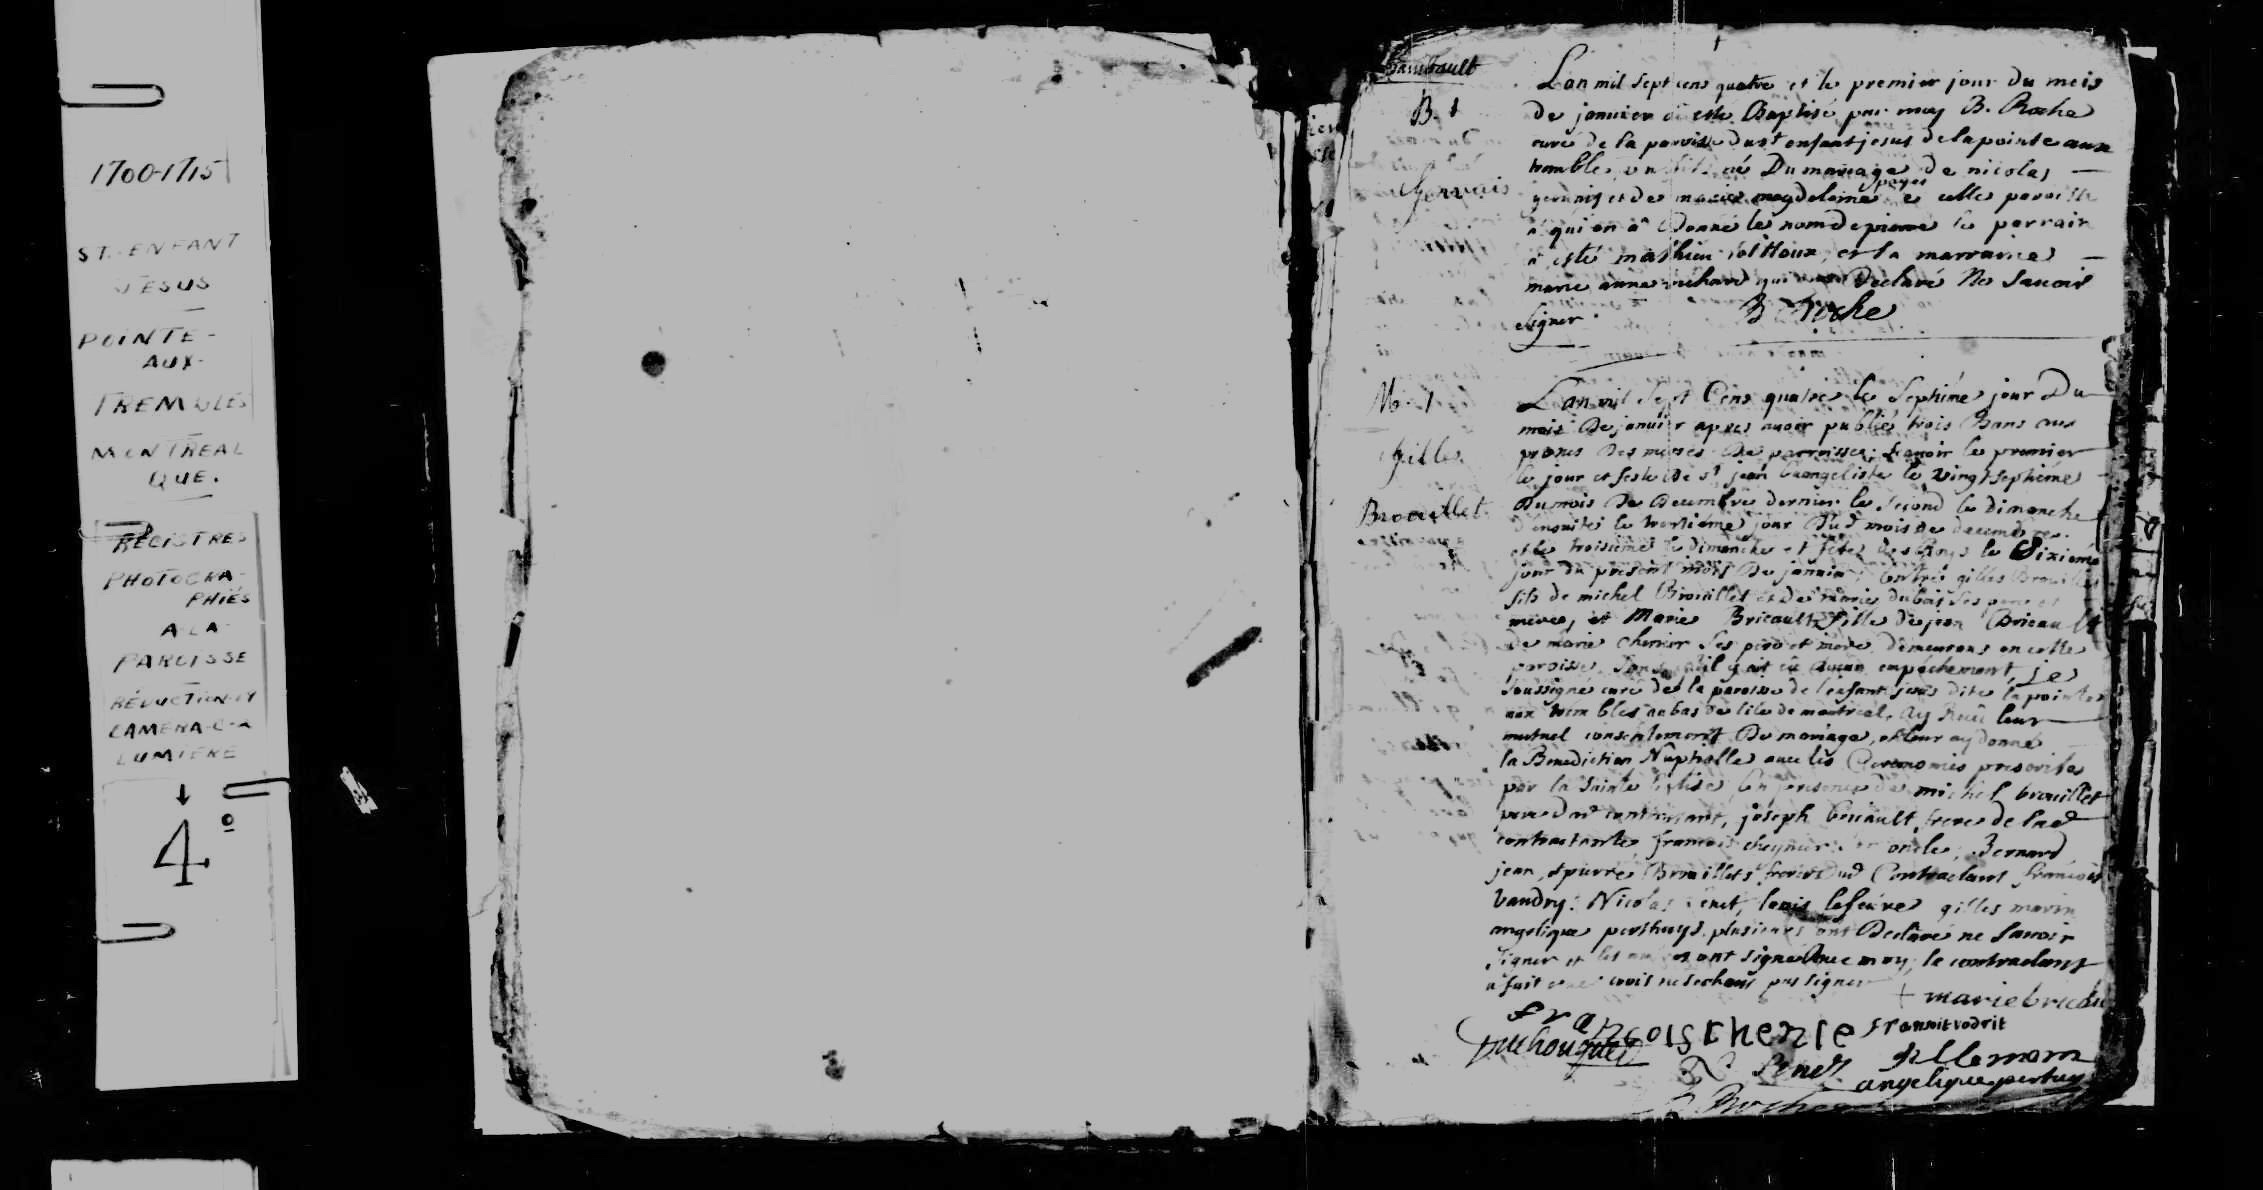 1700-1715
ST. ENFANT
JESUS
POINTE-
AUX-
TREMBLES
MONTREAL
QUE.
REGISTRES
PHOTOGRA-
PHIÉS
A LA
PAROISSE
RÉDUCTION-14
CAMERA-
LUMIERE
4º
B. 1
Gervais
Lan mil sept cens quatre et le premier jour du mois
de janvier a esté Baptisé par moy B. Roche
curé de la paroisse du st enfant jesus de la pointe aux
trembles un fils né Du mariage de nicolas
gervais et de marie magdeleine payet de cette paroisse
a qui on a Donné le nom de pierre le parrain
a esté mathieu et la marraine
marie anne richard qui Declaré Ne Savoir
signer B Roche
M. 1
Gilles
Brouillet
Lan mil Sept Cens quatre le Septiéme jour Du
mois De janvier apres avoir publiés trois Bans aux
prones des messes De parroisse, Scavoir le premier
le jour et feste de st jean Evangeliste le vingt septiéme
Du mois De Decembre dernier le second le dimanche
le trentiéme jour Dud mois de decembre
et le troisieme le dimanche et fête des Roys le Sixiéme
jour du present mois De janvier; Entre gilles Brouillet
fils de michel Brouillet et de marie dubois ses pere et
mere, et Marie Bricault fille de jean Bricault
de marie chenier ses pere et mere demeurans en cette
paroisse, Sans qu'il y ait eû aucun empechement, je
soussigné curé de la paroisse de l'enfant jesus dite la pointe
aux trembles au bas de l'ile de montreal, ay Receû leur
mutuel consentement De mariage, et leur ay donné
la Benediction Nuptialle avec les Ceremonies prescrites
par la Sainte Eglise, En presence de michel brouillet
pere dud contractant, joseph bricault, frere de lad
contractante francois cheynier oncle, Bernard
jean, et pierre Brouillets freres dud Contractant francois
Vaudry. Nicolas Senet, louis lefeure gilles marin
angelique perthuys, plusieurs ont Declaré ne Savoir
Signer et les autres ont signé Avec moy, le contractant
a fait une croix ne sechant pas signer
+ marie bricau
francois chenie frannit vodrit
Duchouquet
N Senet Gille marin
angelique pertuy
B. Roche